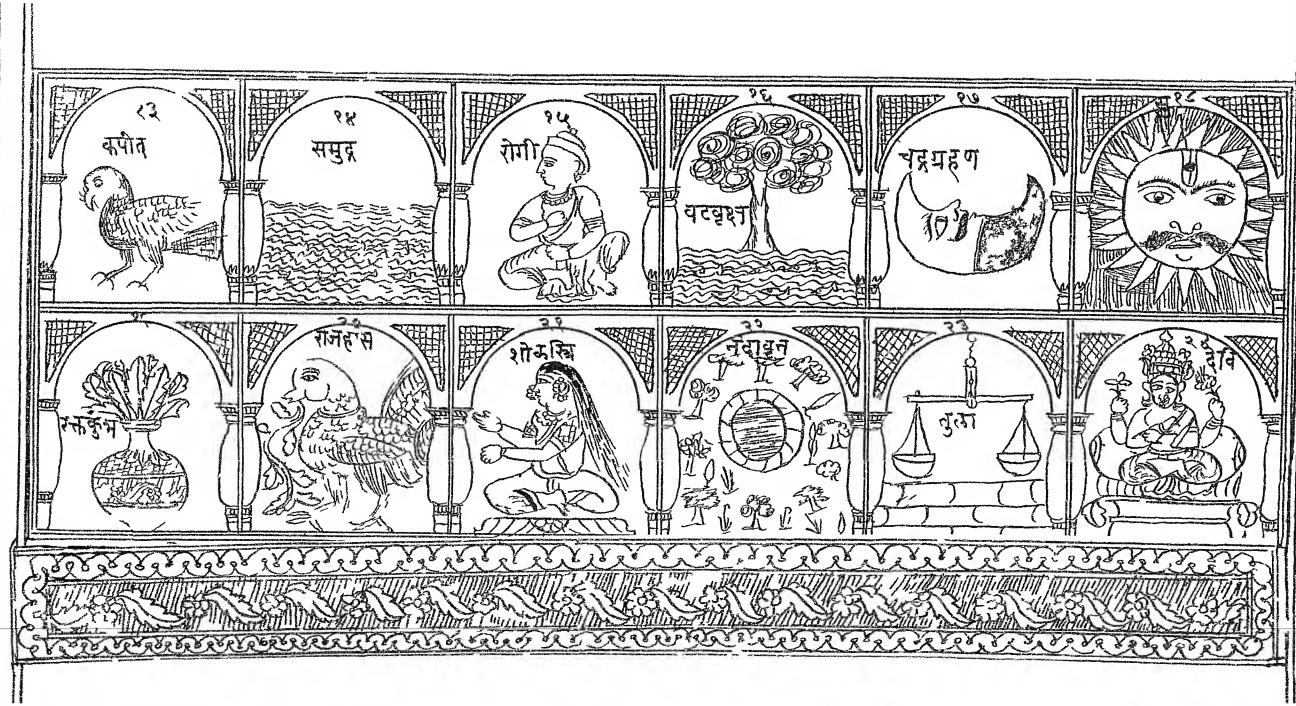 १३
कपोत
१४
समुद्र
१५
रोगी
१६
वटवृक्ष
१७
चद्रग्रहण
१८
१९
रक्तकुंभ
२०
राजहंस
२१
शोकस्त्रि
२२
२३
तुला
२४
देवि